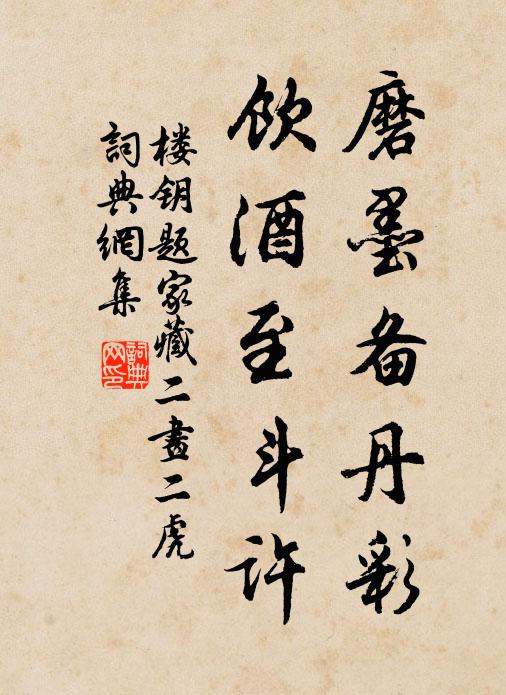 磨墨备丹彩
饮酒至斗许
楼钥题家藏二畫二虎
詞典網集
詞典网印